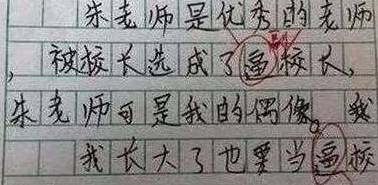 朱老师是优秀的老师
，被校长选成了逼校长，
朱老师可是我的偶像。我
我长大了也要当逼校